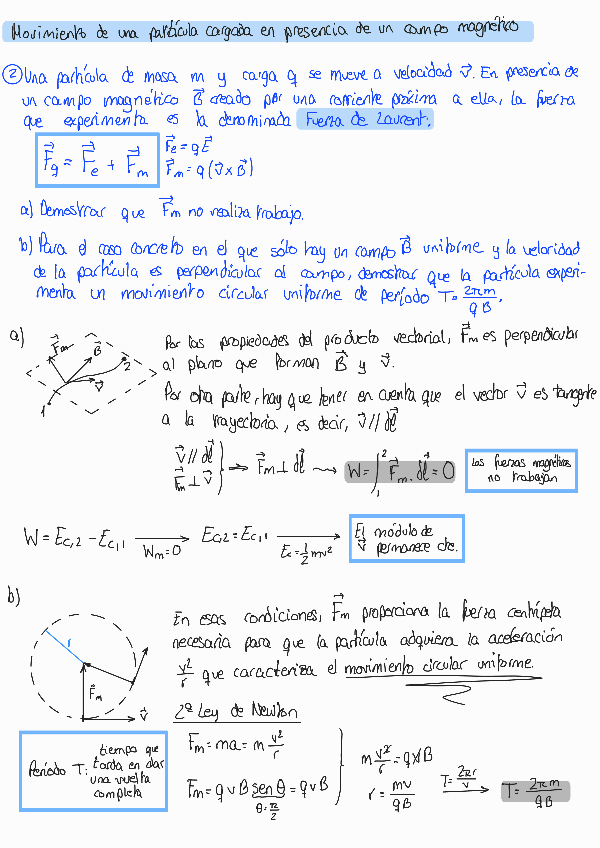 Movimiento de una partícula cargada en presencia de un campo magnético
② Una partícula de masa m y carga q se mueve a velocidad v⃗. En presencia de
un campo magnético B⃗ creado por una corriente próxima a ella, la fuerza
que experimenta es la denominada Fuerza de Laurent.
F⃗g = F⃗e + F⃗m
F⃗e = q E⃗
F⃗m = q (v⃗ x B⃗)
a) Demostrar que F⃗m no realiza trabajo.
b) Para el caso concreto en el que sólo hay un campo B⃗ uniforme y la velocidad
de la partícula es perpendicular al campo, demostrar que la partícula experi-
menta un movimiento circular uniforme de período T = 2πm / qB.
a)
F⃗m B⃗ 2
v⃗
1
Por las propiedades del producto vectorial, F⃗m es perpendicular
al plano que forman B⃗ y v⃗.
Por otra parte, hay que tener en cuenta que el vector v⃗ es tangente
a la trayectoria, es decir, v⃗ // dl⃗
v⃗ // dl⃗
F⃗m ⊥ v⃗
F⃗m ⊥ dl⃗
W = ∫₁² F⃗m · dl⃗ = 0
Las fuerzas magnéticas
no trabajan
W = Ec,2 - Ec,1
Wm = 0
Ec,2 = Ec,1
Ec = 1/2 mv²
El módulo de
v⃗ permanece cte.
b)
r
F⃗m
v⃗
En esas condiciones, F⃗m proporciona la fuerza centrípeta
necesaria para que la partícula adquiera la aceleración
v²/r que caracteriza el movimiento circular uniforme.
2ª Ley de Newton
Fm = ma = m v²/r
Fm = q v B sen θ = q v B
θ = π/2
m v²/r = q v B
r = mv / qB
T = 2πr / v
T = 2πm / qB
Período T: tiempo que
tarda en dar
una vuelta
completa